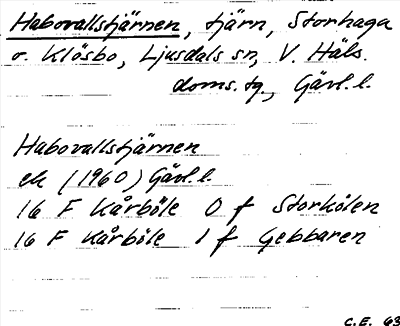 Habovallstjärnen, tjärn, Storhaga
o. Klösbo, Ljusdals sn, V. Häls.
doms.tg., Gävl.l.
Habovallstjärnen
ek (1960) Gävl.l.
16 F Kårböle 0 f Storkölen
16 F Kårböle 1 f Gebbaren
C.E. 63